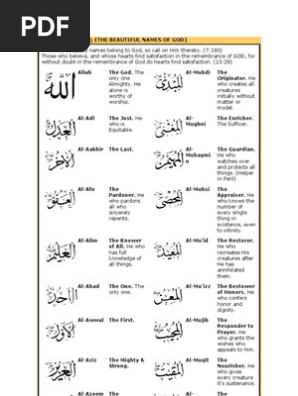 PDF
(THE BEAUTIFUL NAMES OF GOD)
names belong to God, so call on Him thereby. (7:180)
Those who believe, and whose hearts find satisfaction in the remembrance of GOD, for
without doubt in the remembrance of GOD do hearts find satisfaction. (13:28)
الله
Allah
The God. The
only one
Almighty. He
alone is
worthy of
worship.
المبدئ
Al-Mubdi
The
Originator. He
who creates all
creatures
initially without
matter or
model.
العدل
Al-Adl
The Just. He
who is
Equitable.
المغني
Al-
Mughni
The Enricher.
The Sufficer.
الآخر
Al-Aakhir
The Last.
المهيمن
Al-
Muhaymi
n
The Guardian.
He who
watches over
and protects
all things.
(Helper
in Peril)
العفو
Al-Afu
The
Pardoner. He
who pardons
all who
sincerely
repents.
المحصي
Al-Muhsi
The
Appraiser. He
who knows the
number of
every single
thing in
existence, even
to infinity.
العليم
Al-Alim
The Knower
of All. He who
has full
knowledge of
all things.
المعيد
Al-Mu'id
The Restorer.
He who
recreates His
creatures after
He has
annihilated
them.
الأحد
Al-Ahad
The One. The
only one.
المعز
Al-Mu'izz
The Bestower
of Honors. He
who confers
honor and
dignity.
الأول
Al-Awwal
The First.
المجيب
Al-Mujib
The
Responder to
Prayer. He
who grants the
wishes who
appeals to him.
العزيز
Al-Aziz
The Mighty &
Strong.
المقيت
Al-Muqit
The
Nourisher. He
who gives
every creature
it's sustenance.
Al-Azeem
The
Al-
The